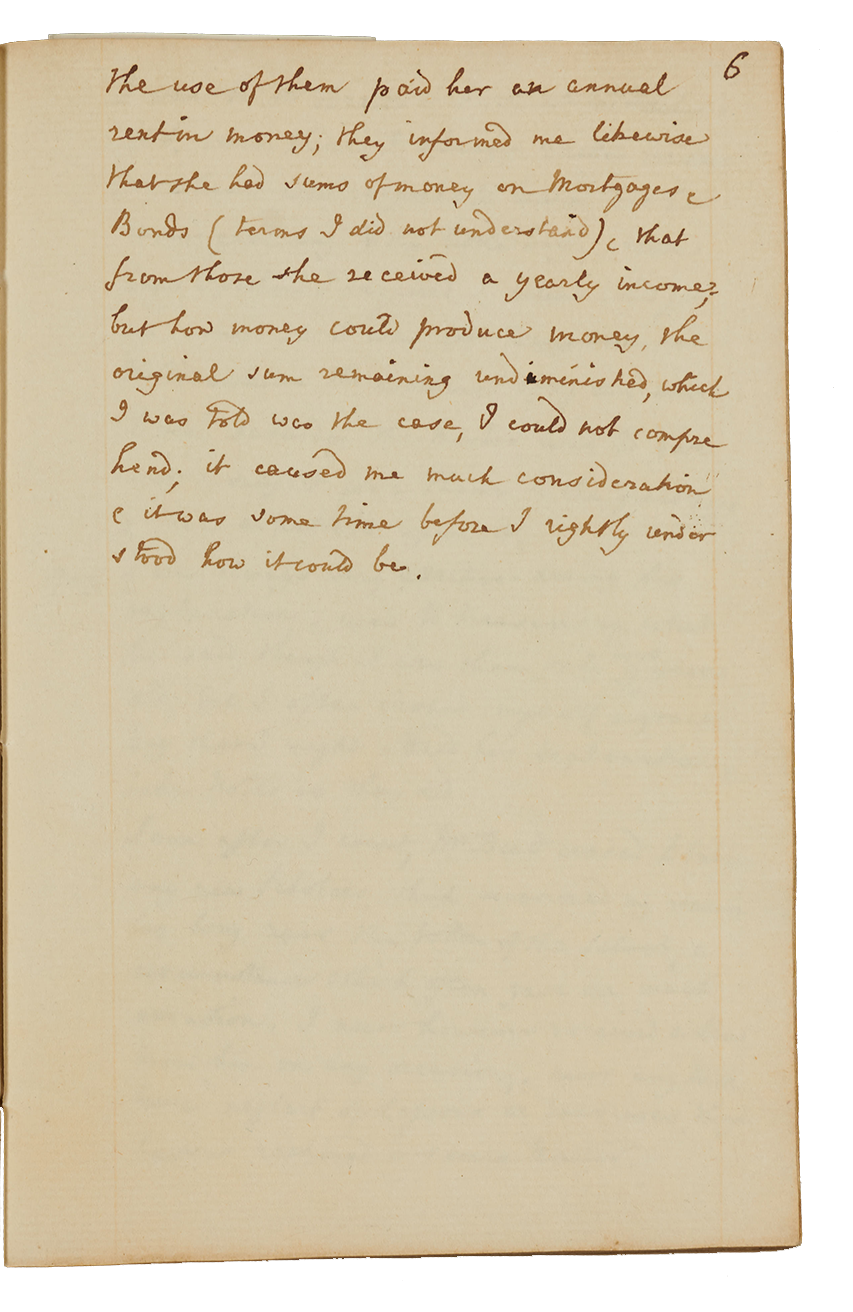 6
the use of them paid her an annual
rent in money; they informed me likewise
that she had sums of money on Mortgages &
Bonds (terms I did not understand), & that
from those she received a yearly income;
but how money could produce money, the
original sum remaining undiminished, which
I was told was the case, I could not compre
hend; it caused me much consideration
& it was some time before I rightly under
stood how it could be.